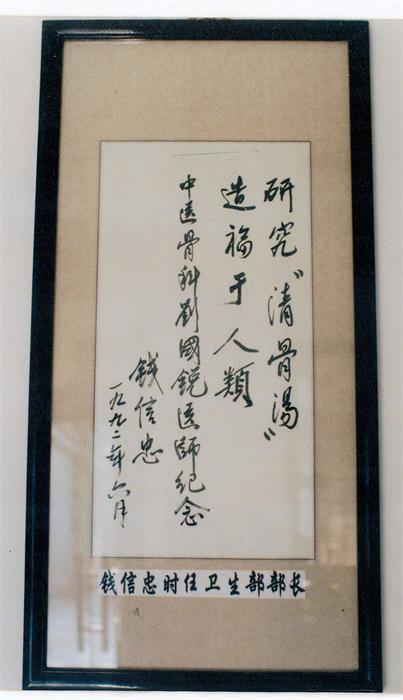 研究"清骨湯"
造福于人類
中医骨科劉國銳医師纪念
钱信忠
一九九二年六月
钱信忠时任卫生部部长